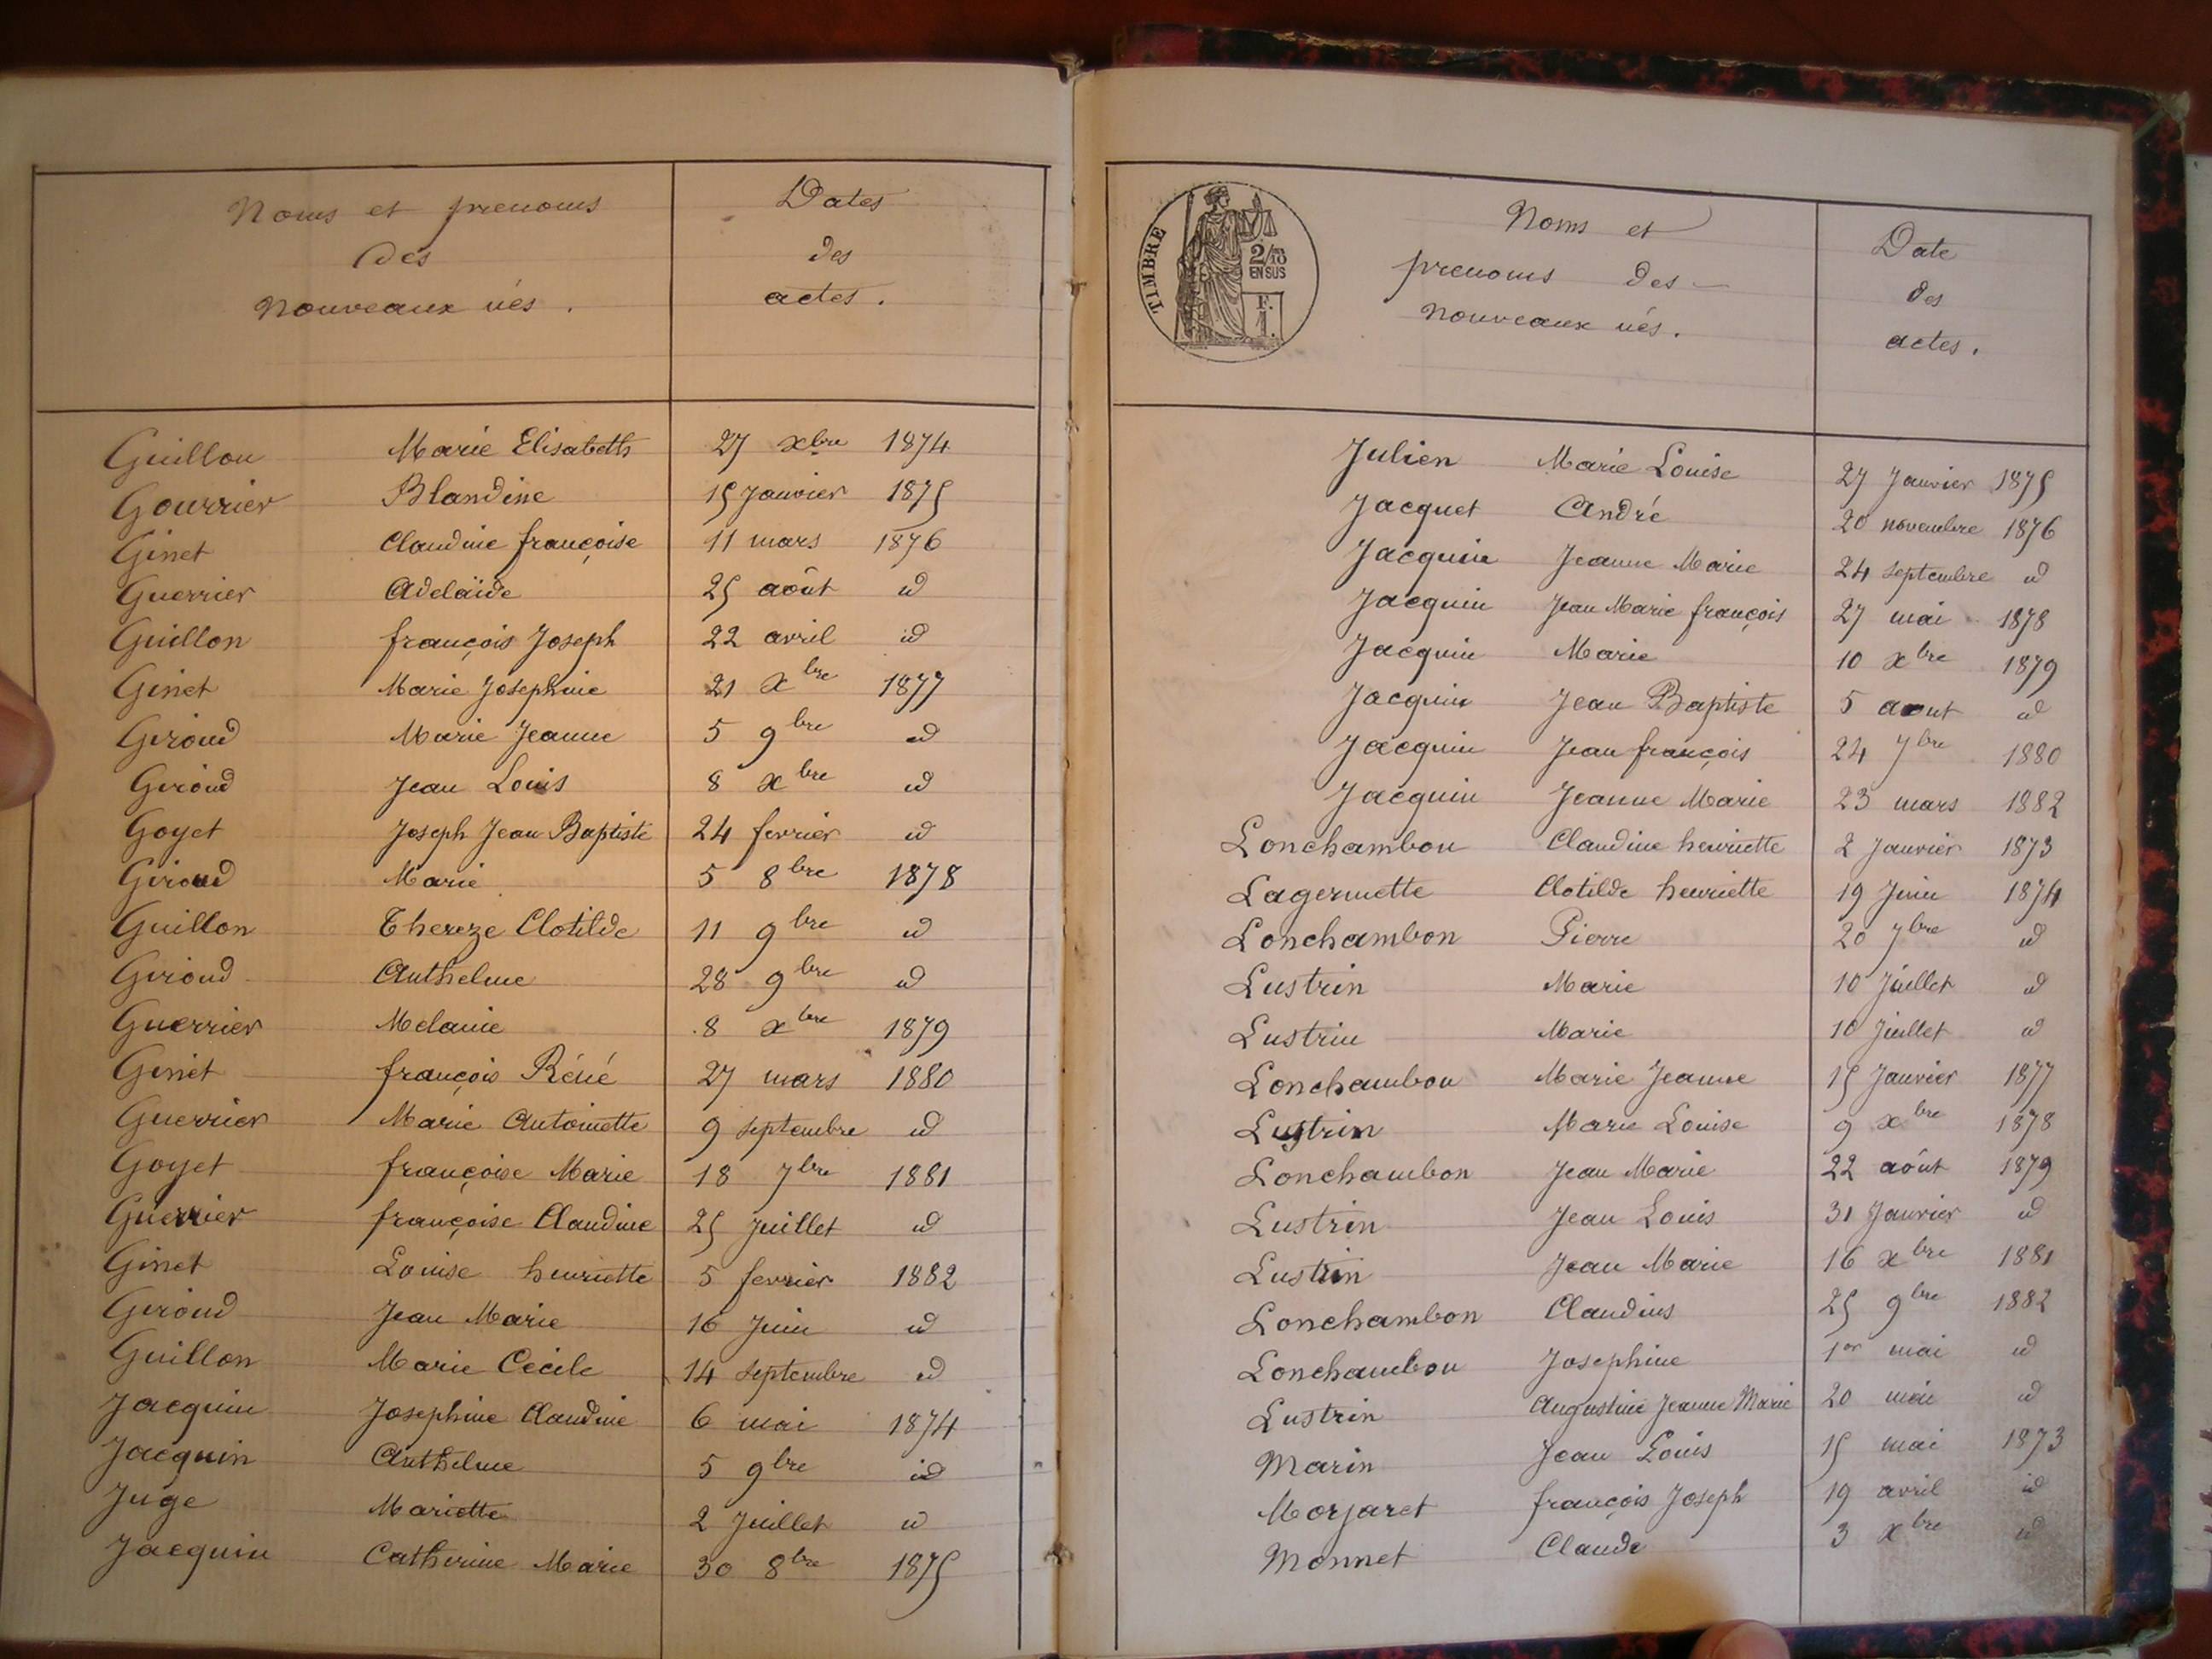 Noms et prenoms
des
nouveaux nés.
Dates
des
actes.
Guillon Marie Elisabeth 27 xbre 1874
Gourrier Blandine 15 Janvier 1875
Ginet Claudine françoise 11 mars 1876
Guerrier Adelaïde 25 août id
Guillon françois Joseph 22 avril id
Ginet Marie Josephine 21 xbre 1877
Giroud Marie Jeanne 5 9bre id
Giroud Jean Louis 8 xbre id
Goyet Joseph Jean Baptiste 24 fevrier id
Giroud Marie 5 8bre 1878
Guillon Thereze Clotilde 11 9bre id
Giroud Anthelme 28 9bre id
Guerrier Melanie 8 xbre 1879
Ginet françois Réné 27 mars 1880
Guerrier Marie Antoinette 9 septembre id
Goyet françoise Marie 18 7bre 1881
Guerrier françoise Claudine 25 Juillet id
Ginet Louise henriette 5 fevrier 1882
Giroud Jean Marie 16 Juin id
Guillon Marie Cécile 14 septembre id
Jacquin Josephine Claudine 6 mai 1874
Jacquin Anthelme 5 9bre id
Juge Mariette 2 Juillet id
Jacquin Catherine Marie 30 8bre 1875
TIMBRE
2/10
EN SUS
F.
1.
Noms et
prenoms des
nouveaux nés.
Date
des
actes.
Julien Marie Louise 27 Janvier 1875
Jacquet André 20 novembre 1876
Jacquin Jeanne Marie 24 septembre id
Jacquin Jean Marie françois 27 mai 1878
Jacquin Marie 10 xbre 1879
Jacquin Jean Baptiste 5 aout id
Jacquin Jean françois 24 7bre 1880
Jacquin Jeanne Marie 23 mars 1882
Lonchambon Claudine henriette 2 Janvier 1873
Lagermette Clotilde henriette 19 Juin 1874
Lonchambon Pierre 20 7bre id
Lustrin Marie 10 Juillet id
Lustrin Marie 10 Juillet id
Lonchambon Marie Jeanne 15 Janvier 1877
Lustrin Marie Louise 9 xbre 1878
Lonchambon Jean Marie 22 août 1879
Lustrin Jean Louis 31 Janvier id
Lustrin Jean Marie 16 xbre 1881
Lonchambon Claudius 25 9bre 1882
Lonchambon Josephine 1er mai id
Lustrin Augustine Jeanne Marie 20 mai id
Marin Jean Louis 15 mai 1873
Morjaret françois Joseph 19 avril id
Monnet Claude 3 xbre id